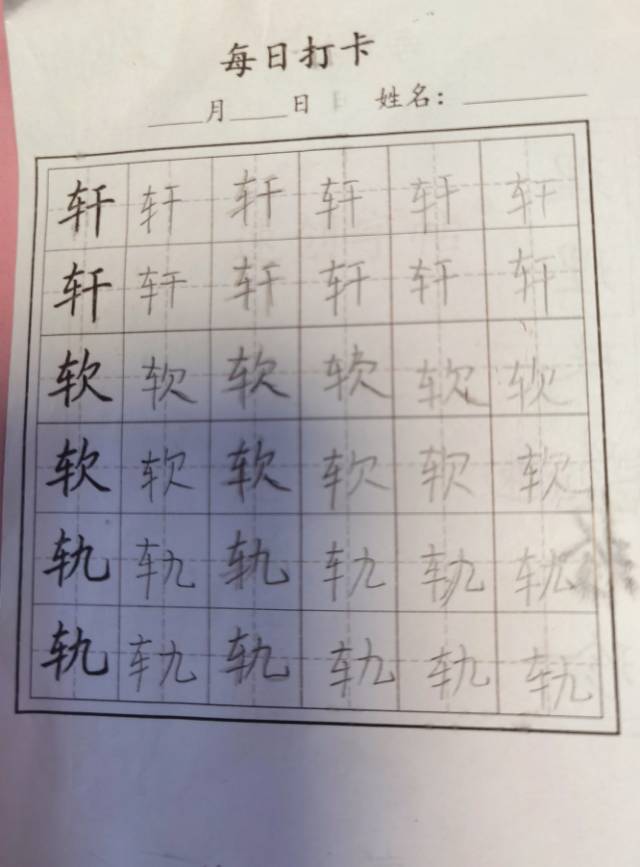 每日打卡
____月____日 姓名：________
轩 轩 轩 轩 轩 轩
轩 轩 轩 轩 轩 轩
软 软 软 软 软 软
软 软 软 软 软 软
轨 轨 轨 轨 轨 轨
轨 轨 轨 轨 轨 轨